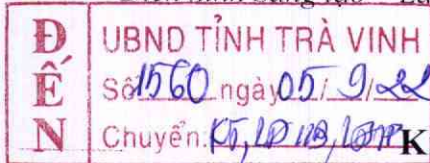 ĐẾN
UBND TỈNH TRÀ VINH
Số 1560 ngày 05/9/22
Chuyển: KT,
K